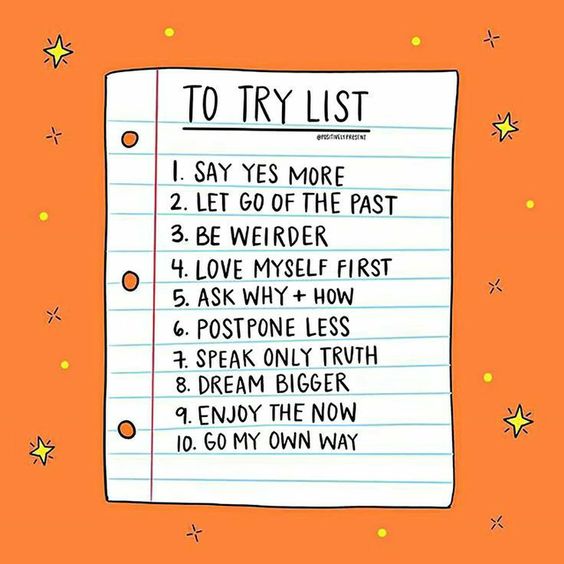 TO TRY LIST
@POSITIVELYPRESENT
1. SAY YES MORE
2. LET GO OF THE PAST
3. BE WEIRDER
4. LOVE MYSELF FIRST
5. ASK WHY + HOW
6. POSTPONE LESS
7. SPEAK ONLY TRUTH
8. DREAM BIGGER
9. ENJOY THE NOW
10. GO MY OWN WAY